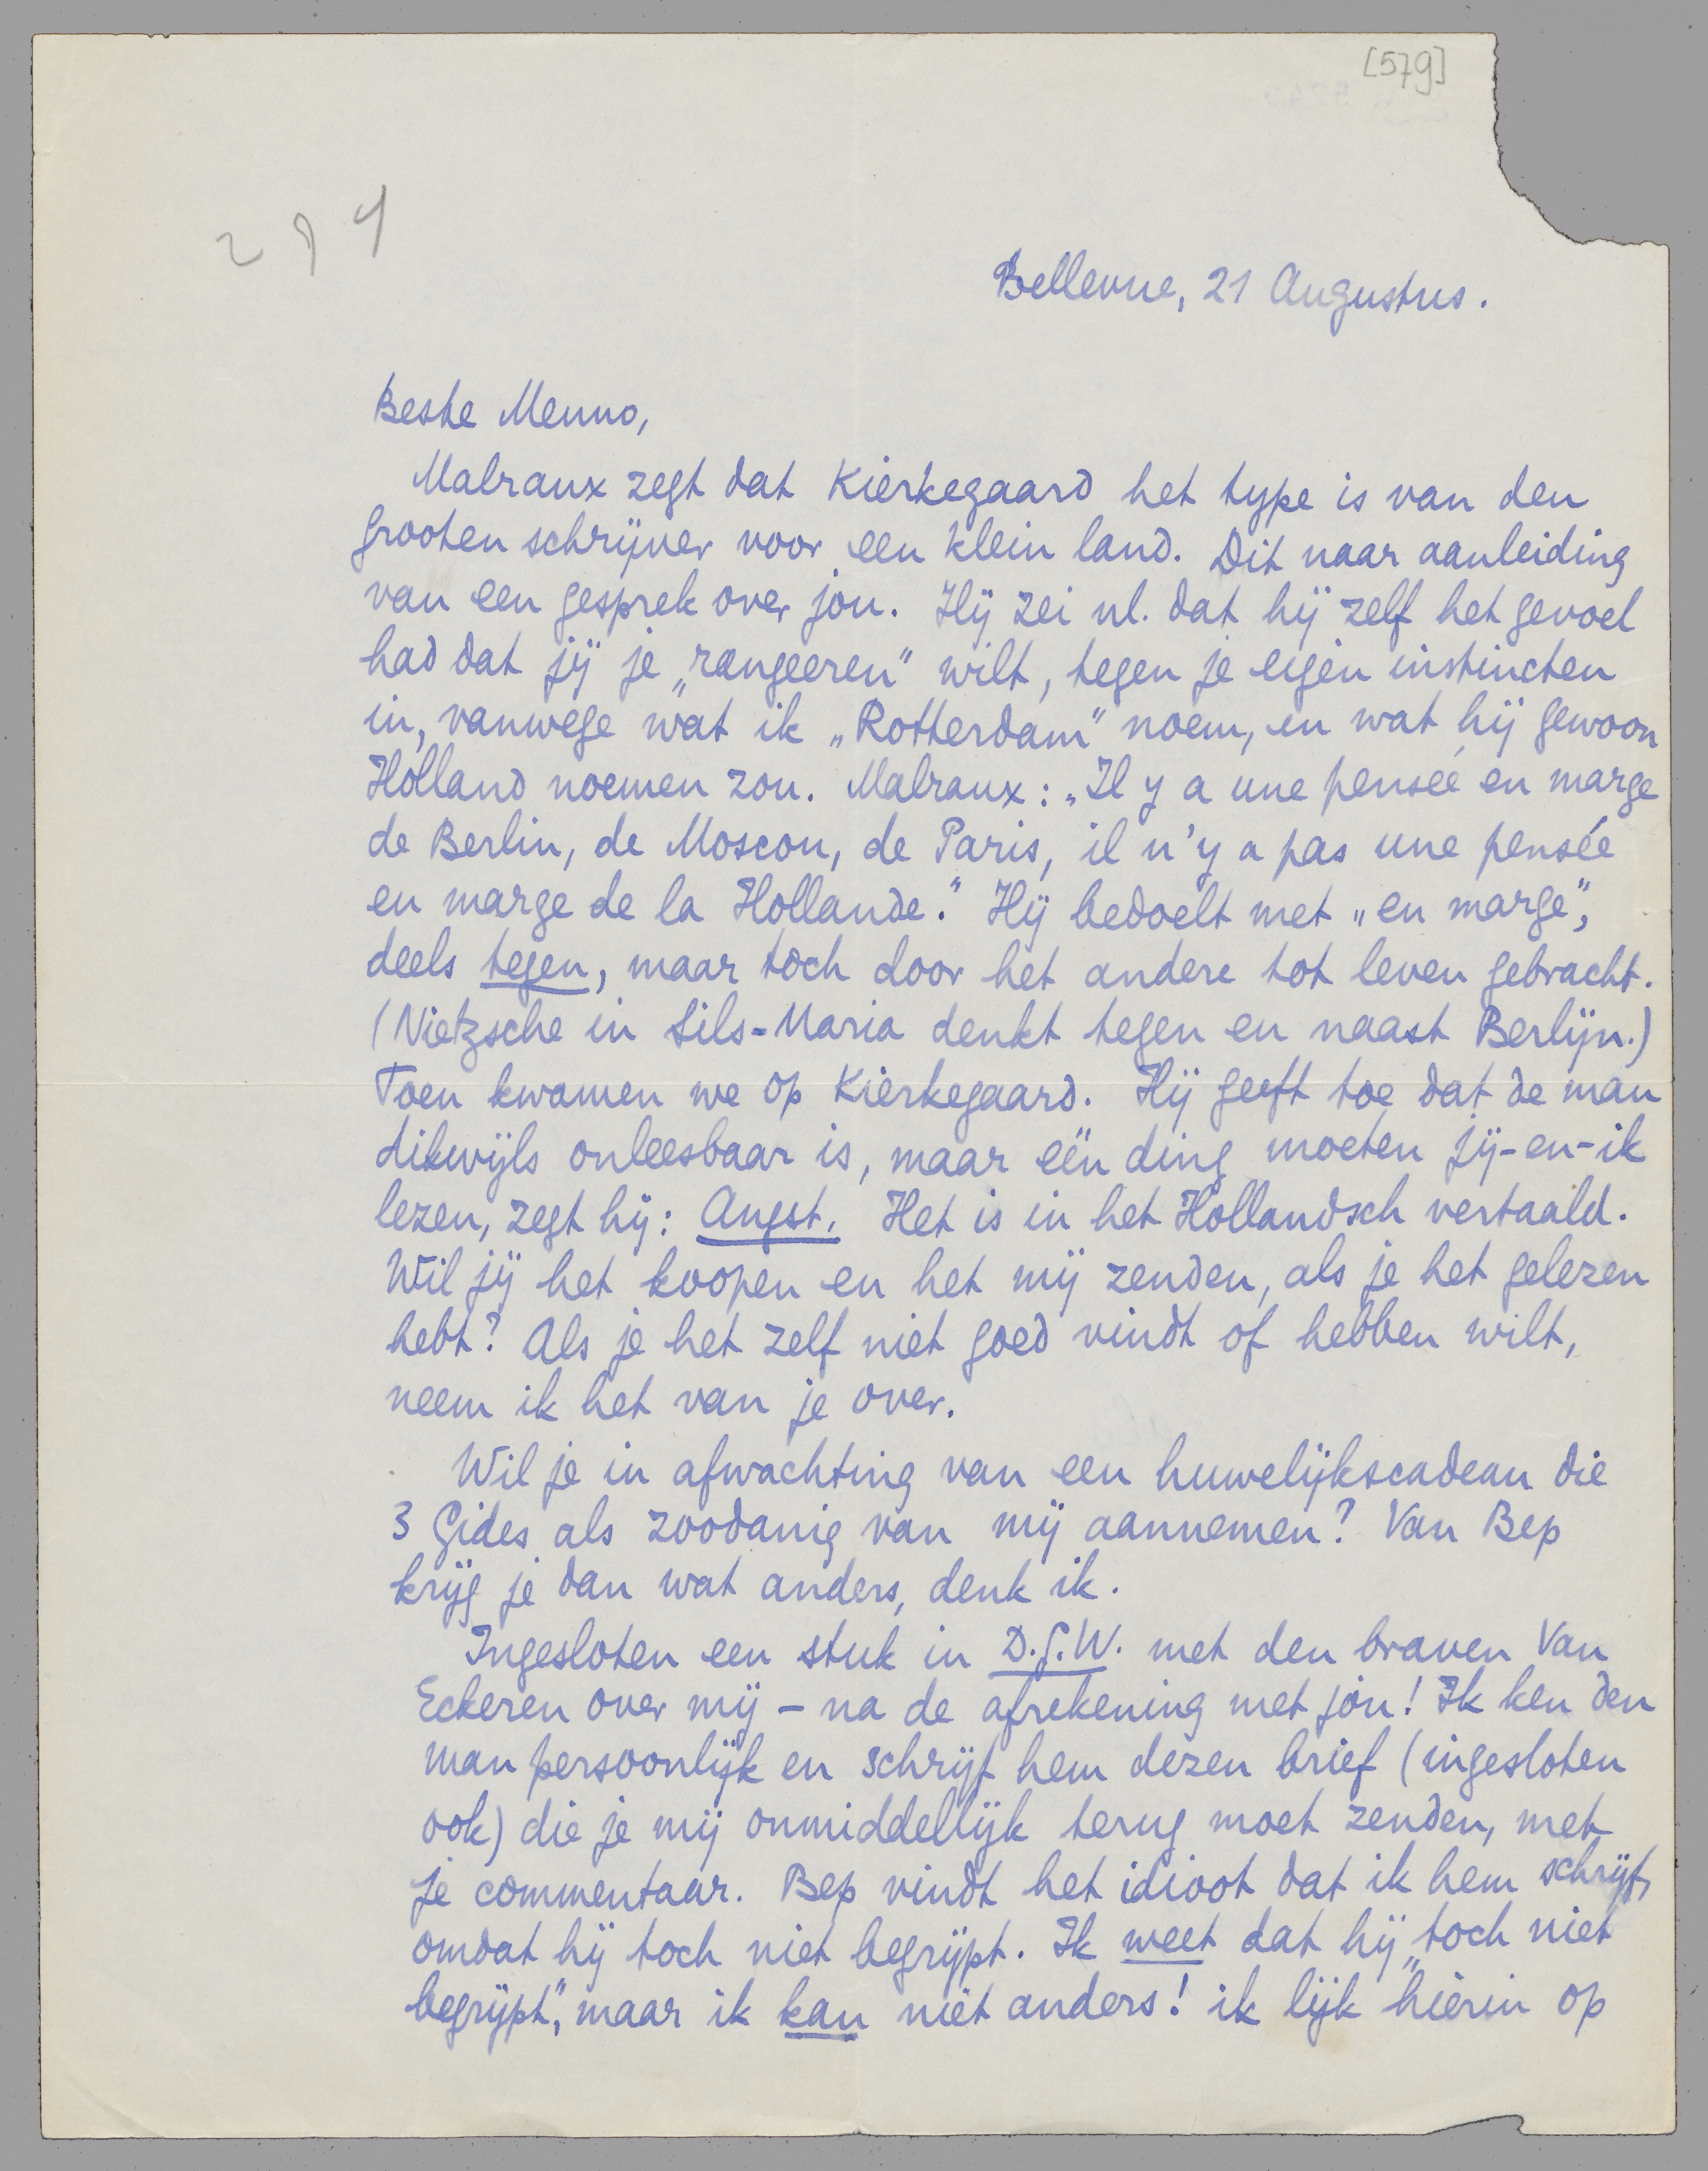 [579]
294
Bellevue, 21 Augustus.
Beste Menno,
Malraux zegt dat Kierkegaard het type is van den
grooten schrijver voor een klein land. Dit naar aanleiding
van een gesprek over jou. Hij zei nl. dat hij zelf het gevoel
had dat jij je „rangeeren" wilt, tegen je eigen instincten
in, vanwege wat ik „Rotterdam" noem, en wat hij gewoon
Holland noemen zou. Malraux: „Il y a une pensée en marge
de Berlin, de Moscou, de Paris, il n'y a pas une pensée
en marge de la Hollande." Hij bedoelt met „en marge",
deels tegen, maar toch door het andere tot leven gebracht.
(Nietzsche in Sils-Maria denkt tegen en naast Berlijn.)
Toen kwamen we op Kierkegaard. Hij geeft toe dat de man
dikwijls onleesbaar is, maar één ding moeten jij-en-ik
lezen, zegt hij: Angst. Het is in het Hollandsch vertaald.
Wil jij het koopen en het mij zenden, als je het gelezen
hebt? Als je het zelf niet goed vindt of hebben wilt,
neem ik het van je over.
Wil je in afwachting van een huwelijkscadeau die
3 Gides als zoodanig van mij aannemen? Van Bep
krijg je dan wat anders, denk ik.
Ingesloten een stuk in D.G.W. met den braven Van
Eckeren over mij – na de afrekening met jou! Ik ken den
man persoonlijk en schrijf hem dezen brief (ingesloten
ook) die je mij onmiddellijk terug moet zenden, met
je commentaar. Bep vindt het idioot dat ik hem schrijf,
omdat hij toch niet begrijpt. Ik weet dat hij „toch niet
begrijpt", maar ik kan niet anders! ik lijk hierin op